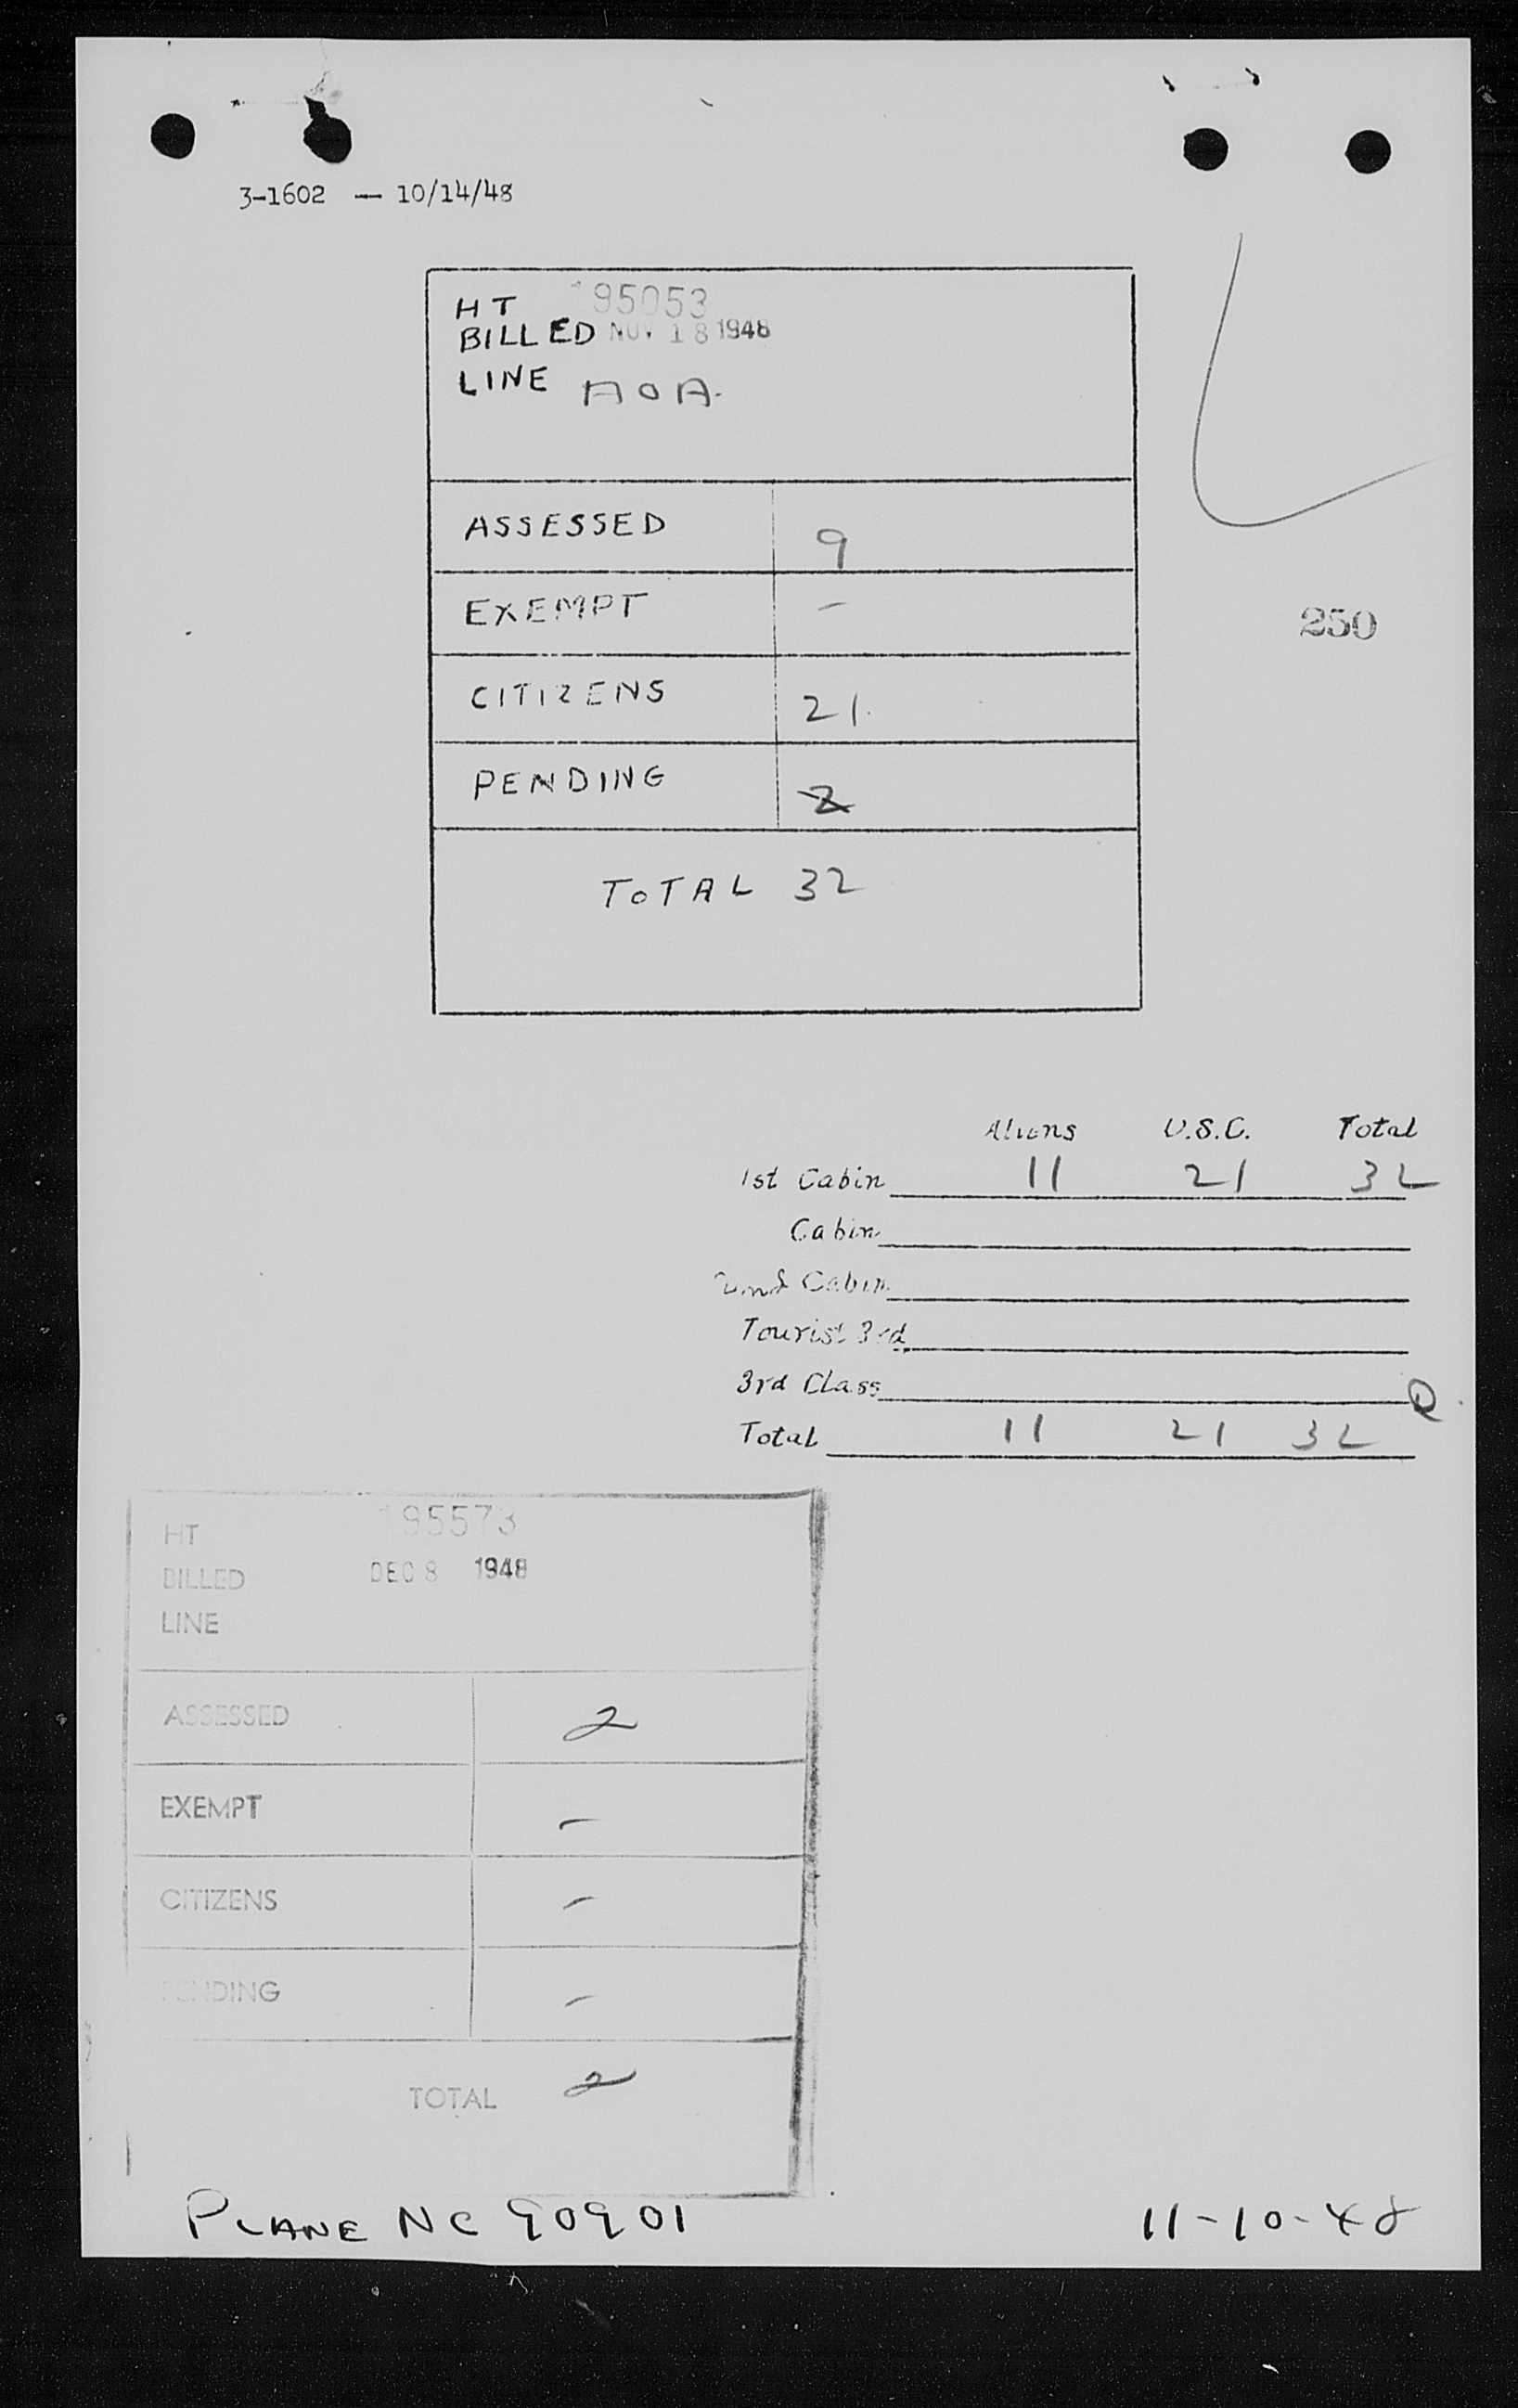 3-1602 — 10/14/48
HT 195053
BILLED NOV 18 1948
LINE AOA.
ASSESSED 9
EXEMPT –
250
CITIZENS 21.
PENDING 2
TOTAL 32
Aliens U.S.C. Total
1st Cabin 11 21 32
Cabin
2nd Cabin
Tourist 3rd
3rd Class
Total 11 21 32
HT 195573
BILLED DEC 8 1948
LINE
ASSESSED 2
EXEMPT –
CITIZENS –
PENDING –
TOTAL 2
PLANE NC 90901 11-10-48